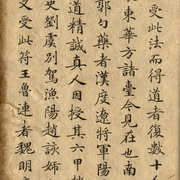 受此法而得道者復數十
東華方諸臺今見在也南
郭勺藥者漢度遼將軍陽
道精誠真人因授其六甲
史劉虞別駕漁陽趙該姊
又受此符王魯連者魏明